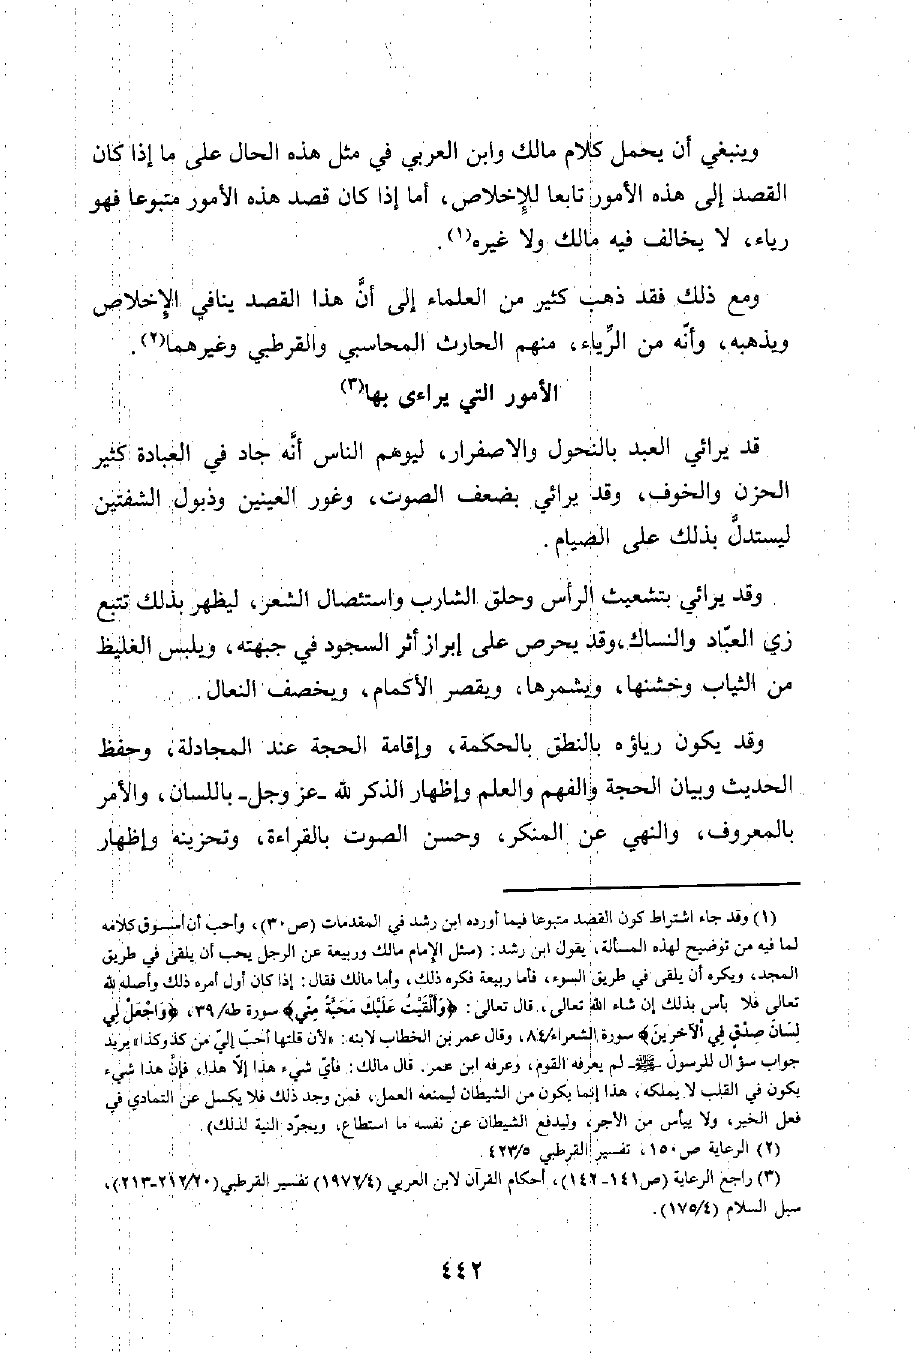 وينبغي أن يحمل كلام مالك وابن العربي في مثل هذه الحال على ما إذا كان
القصد إلى هذه الأمور تابعا للإخلاص، أما إذا كان قصد هذه الأمور متبوعا فهو
رياء، لا يخالف فيه مالك ولا غيره(١).
ومع ذلك فقد ذهب كثير من العلماء إلى أنَّ هذا القصد ينافي الإخلاص
ويذهبه، وأنّه من الرِّياء، منهم الحارث المحاسبي والقرطبي وغيرهما(٢).
الأمور التي يراءى بها(٣)
قد يرائي العبد بالنحول والاصفرار، ليوهم الناس أنَّه جاد في العبادة كثير
الحزن والخوف، وقد يرائي بضعف الصوت، وغور العينين وذبول الشفتين
ليستدلَّ بذلك على الصيام.
وقد يرائي بتشعيث الرأس وحلق الشارب واستئصال الشعر، ليظهر بذلك تتبع
زي العبّاد والنساك، وقد يحرص على إبراز أثر السجود في جبهته، ويلبس الغليظ
من الثياب وخشنها، ويشمرها، ويقصر الأكمام، ويخصف النعال.
وقد يكون رياؤه بالنطق بالحكمة، وإقامة الحجة عند المجادلة، وحفظ
الحديث وبيان الحجة والفهم والعلم وإظهار الذكر لله ـ عز وجل ـ باللسان، والأمر
بالمعروف، والنهي عن المنكر، وحسن الصوت بالقراءة، وتحزينه وإظهار
(١) وقد جاء اشتراط كون القصد متبوعا فيما أورده ابن رشد في المقدمات (ص٣٠)، وأحب أن أسوق كلامه
لما فيه من توضيح لهذه المسألة، يقول ابن رشد: (سئل الإمام مالك وربيعة عن الرجل يحب أن يلقى في طريق
المجد، ويكره أن يلقى في طريق السوء، فأما ربيعة فكره ذلك، وأما مالك فقال: إذا كان أول أمره ذلك وأصله لله
تعالى فلا بأس بذلك إن شاء الله تعالى، قال تعالى: ﴿وَأَلْقَيْتُ عَلَيْكَ مَحَبَّةً مِنِّي﴾ سورة طه/٣٩، ﴿وَاجْعَلْ لِي
لِسَانَ صِدْقٍ فِي الْآخِرِينَ﴾ سورة الشعراء/٨٤، وقال عمر بن الخطاب لابنه: «لأن قلتها أحبّ إليّ من كذ وكذا» يريد
جواب سؤال للرسول ـ ﷺ ـ لم يعرفه القوم، وعرفه ابن عمر. قال مالك: فأيّ شيء هذا إلّا هذا، فإنَّ هذا شيء
يكون في القلب لا يملكه، هذا إنما يكون من الشيطان ليمنعه العمل، فمن وجد ذلك فلا يكسل عن التمادي في
فعل الخير، ولا ييأس من الأجر، وليدفع الشيطان عن نفسه ما استطاع، ويجرّد النية لذلك).
(٢) الرعاية ص١٥٠، تفسير القرطبي ٤٢٣/٥
(٣) راجع الرعاية (ص١٤١-١٤٢)، أحكام القرآن لابن العربي (١٩٧٢/٤) تفسير القرطبي (٢١٢/٢٠-٢١٣)،
سبل السلام (١٧٥/٤).
٤٤٢